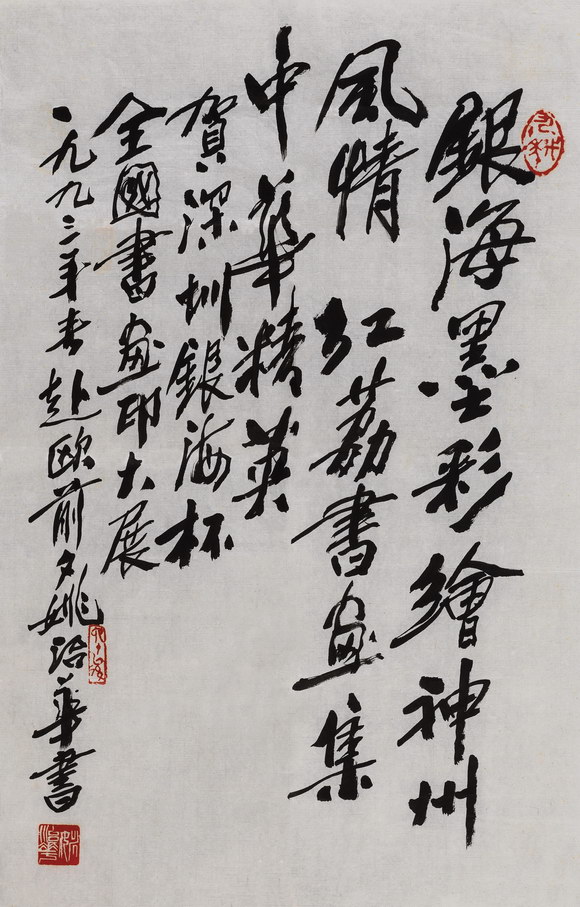 銀海墨彩繪神州
風情 红荔書畫集
中華精英
賀深圳銀海杯
全國書畫印大展
一九九三年春赴歐前夕姚治華書